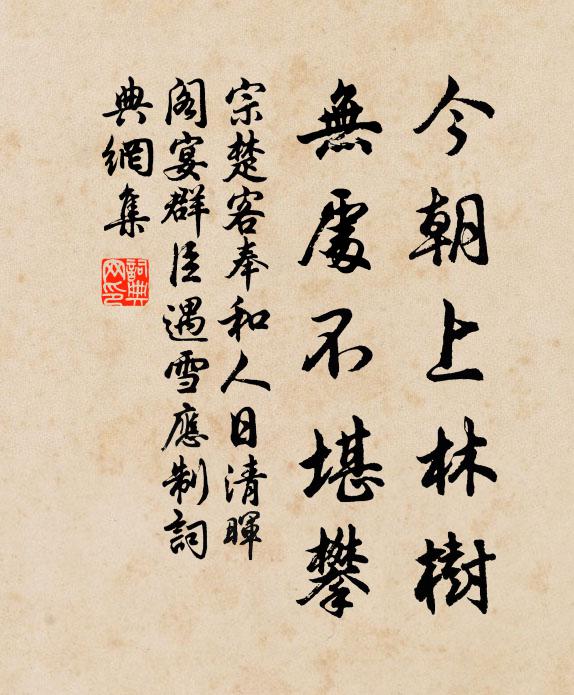 今朝上林樹
無處不堪攀
宗楚客奉和人日清暉
閣宴群臣遇雪應制詞
典網集
詞典
网印